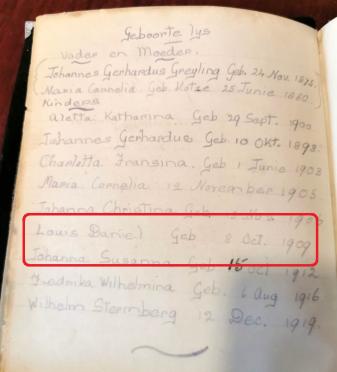 Geboorte lys
Vader en Moeder.
Johannes Gerhardus Greyling Geb. 24 Nov. 1875.
Maria Cornelia Geb. Kotze 25 Junie 1880.
Kinders
Aletta Katharina Geb 29 Sept. 1900
Johannes Gerhardus Geb 10 Okt.
Charlotta Fransina. Geb 1 Junie 1903
Maria Cornelia 12 November 1905
Johanna Christina Geb
Louis Daniel Geb 8 Oct. 1909
Johanna Susanna Geb 15 Oct 1912
Fredrika Wilhelmina Geb. 6 Aug 1916
Wilhelm Sternberg 12 Dec. 1919.